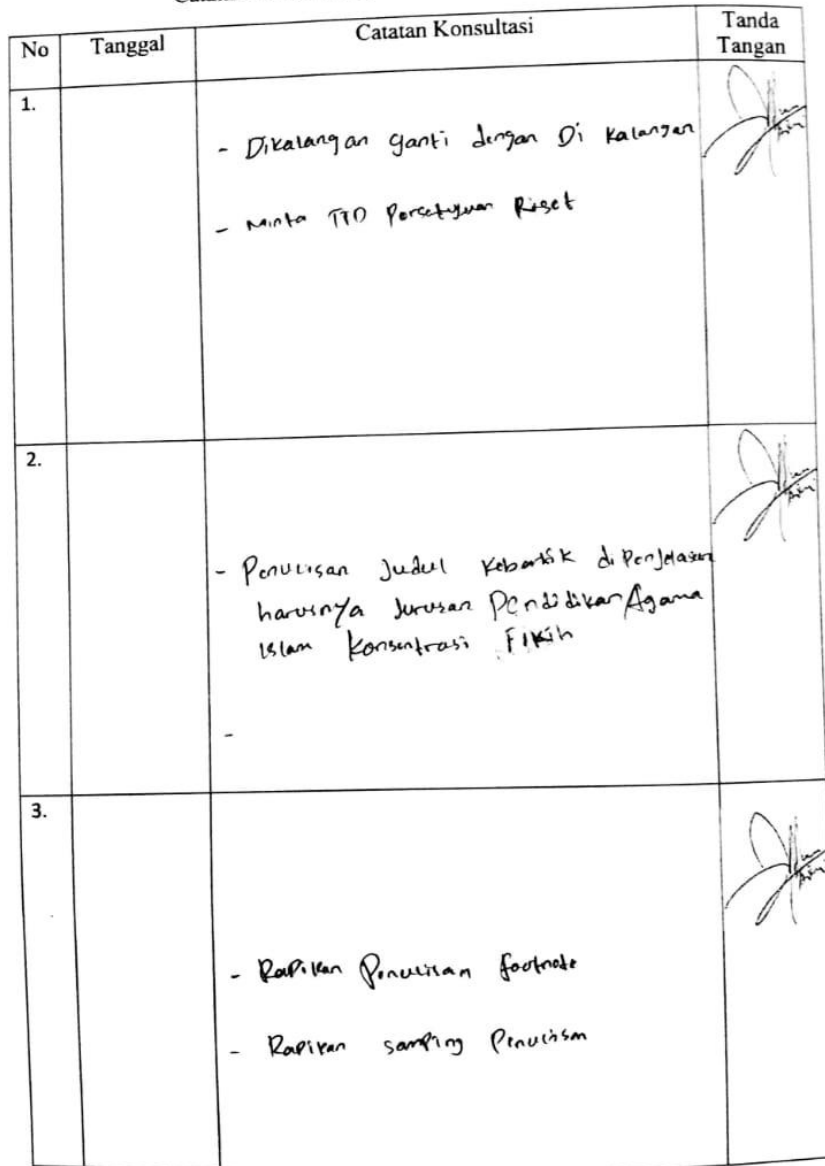 No
Tanggal
Catatan Konsultasi
Tanda
Tangan
1.
- Dikalangan ganti dengan Di kalangan
- Minta TTD Persetujuan Riset
2.
- Penulisan Judul di Penjelasan
harusnya Jurusan Pendidikan Agama
Islam Konsentrasi Fikih
-
3.
- Rapikan Penulisan footnote
- Rapikan samping Penulisan